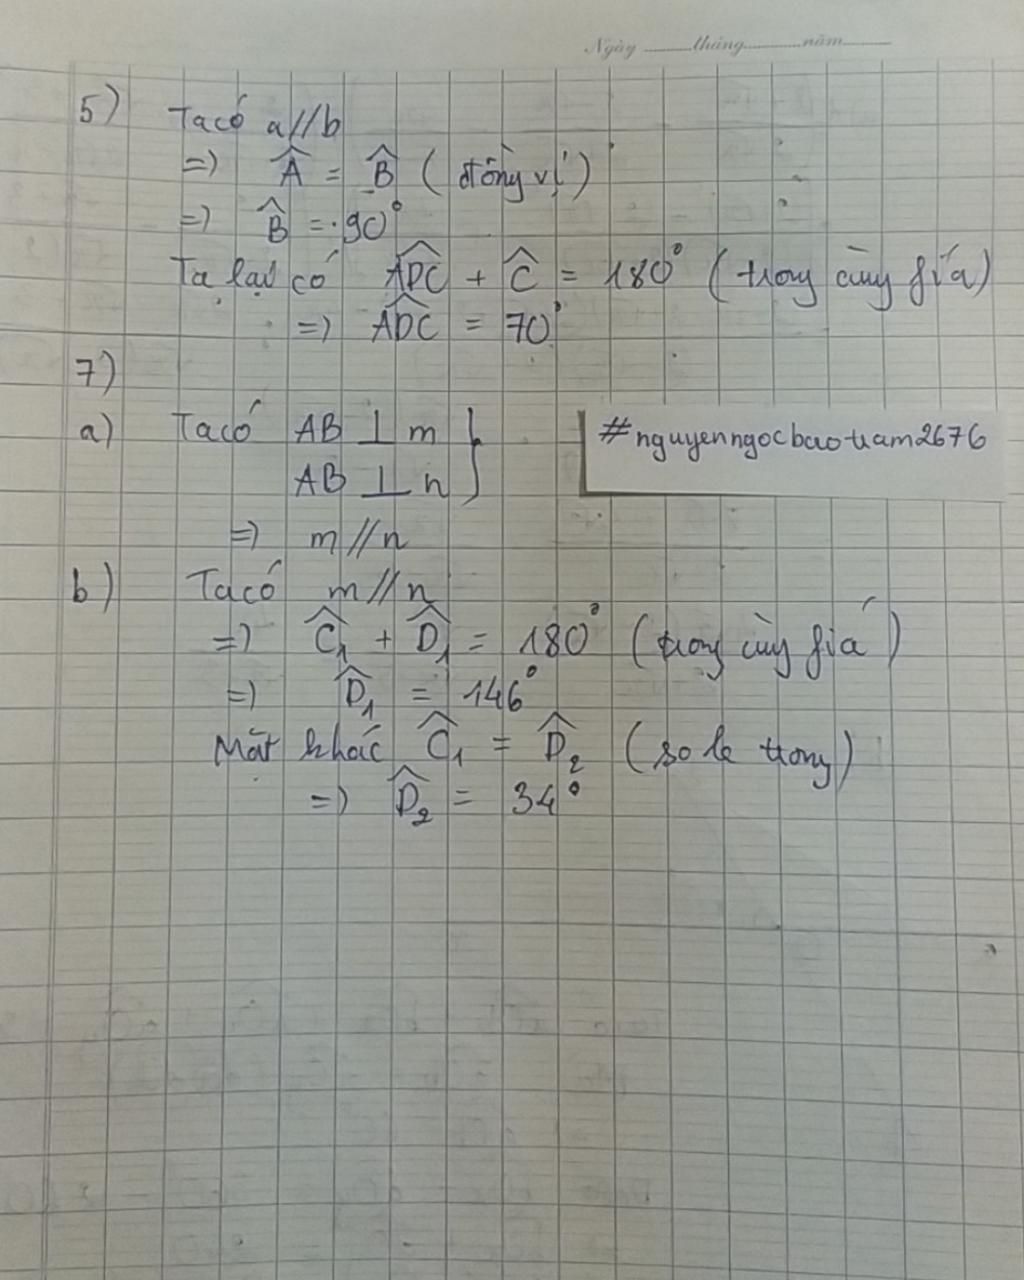 Ngày ........tháng.........năm........
5) Ta có a//b
=> Â = B̂ (đồng vị)
=> B̂ = 90°
Ta lại có ADC̑ + Ĉ = 180° (trong cùng fía)
=> ADC̑ = 70°
7)
a) Ta có AB ⊥ m }
AB ⊥ n
#nguyenngocbaotram2676
=> m//n
b) Ta có m//n
=> Ĉ₁ + D̂₁ = 180° (trong cùng fía)
=> D̂₁ = 146°
Mặt khác Ĉ₁ = D̂₂ (so le trong)
=> D̂₂ = 34°